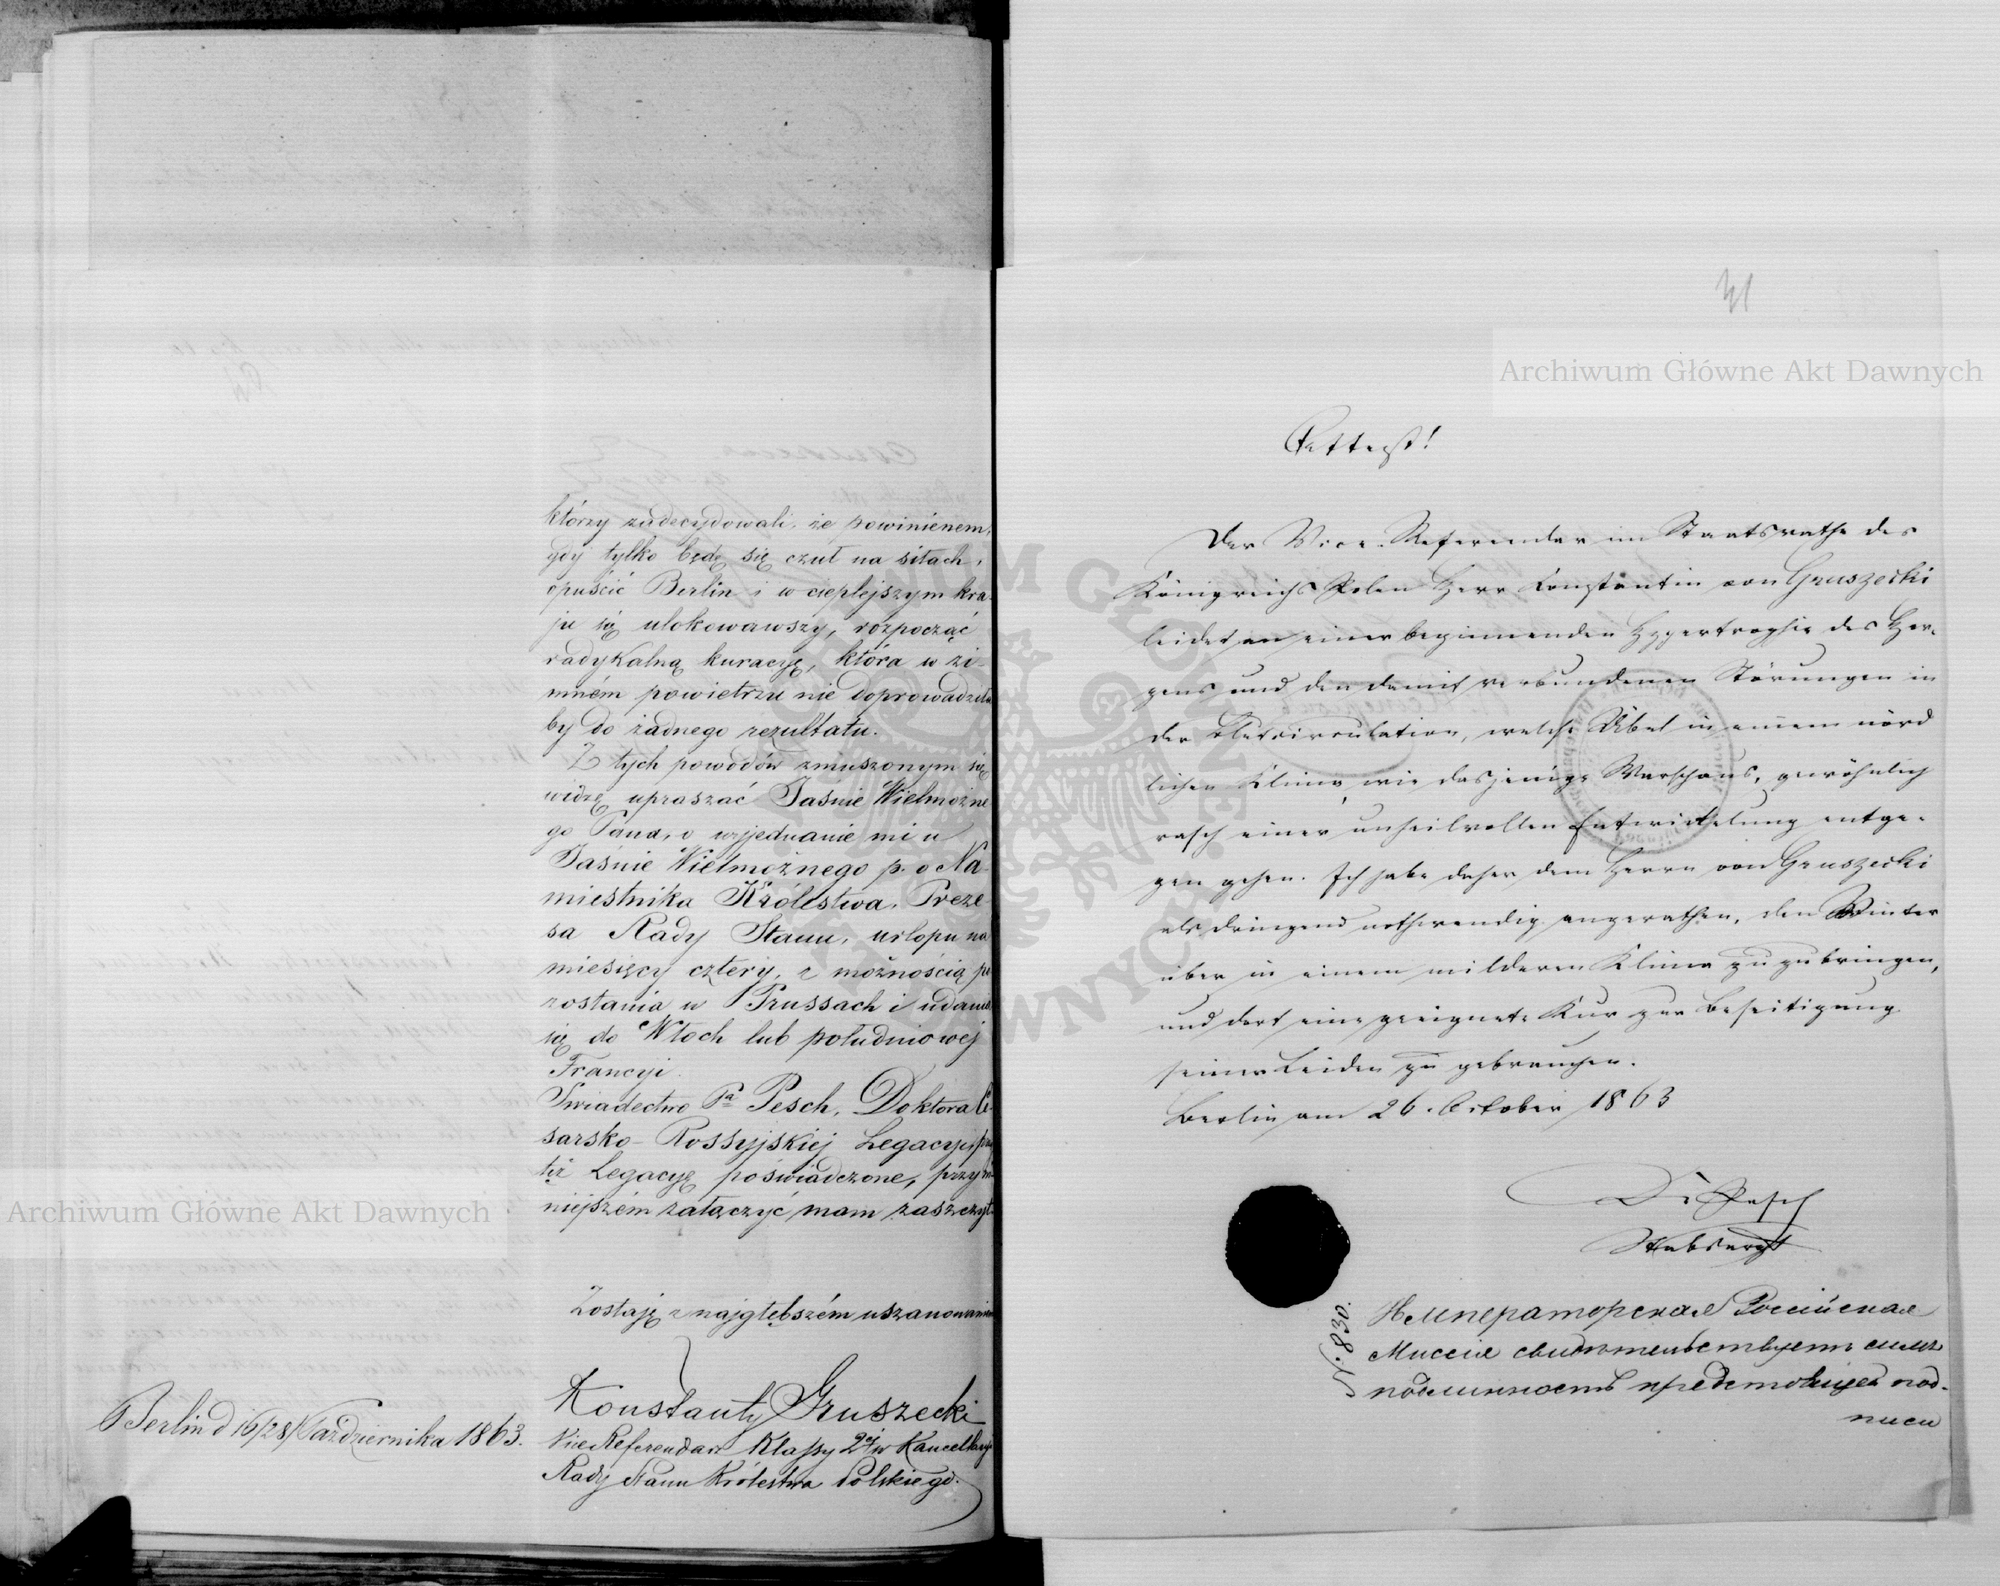 którzy zadecydowali, że powinienem,
gdy tylko będę się czuł na siłach,
opuścić Berlin i w cieplejszym kra-
ju się ulokowawszy, rozpocząć
radykalną kuracyę, która w zi-
mném powietrzu nie doprowadziła
by do żadnego rezultatu.
Z tych powodów zmuszonym się
widzę upraszać Jaśnie Wielmożne
go Pana, o wyjednanie mi u
Jaśnie Wielmożnego p. o Na-
miestnika Królestwa, Preze-
sa Rady Stanu, urlopu na
miesięcy cztery, z możnością po
zostania w Prussach i udania
się do Włoch lub południowej
Francyi.
Świadectwo Pa Pesch, Doktora Ce-
sarsko-Rossyjskiej Legacyi przez
tęż Legacyę poświadczone, przy ni
niejszém załączyć mam zaszczyt.
Zostaję z najgłębszém uszanowaniem
Konstanty Gruszecki
Vice Referendarz Klassy 2ej w Kancellaryi
Rady Stanu Królestwa Polskiego.
Berlin d 16/28 Października 1863.
41
Archiwum Główne Akt Dawnych
Attest!
Der Vice-Referendar im Staatsrathe des
Königreichs Polen Herr Constantin von Gruszecki
leidet an einer beginnenden Hypertrophie des Her-
zens und den damit verbundenen Störungen in
der Blutcirculation, welche Übel in einem nörd
lichen Klima, wie dasjenige Warschaus, gewöhnlich
rasch einer unheilvollen Entwickelung entge-
gen gehen. Ich habe daher dem Herrn von Gruszecki
als dringend nothwendig angerathen, den Winter
über in einem milderen Klima zuzubringen,
und dort eine geeignete Kur zur Beseitigung
seiner Leiden zu gebrauchen.
Berlin am 26. October 1863
Dr Pesch
Stabsarzt
No 830.
Императорская Россiйская
Миссiя свидѣтельствуетъ симъ
подлинность предстоящей под-
писи
Archiwum Główne Akt Dawnych
ARCHIWUM GŁÓWNE AKT DAWNYCH